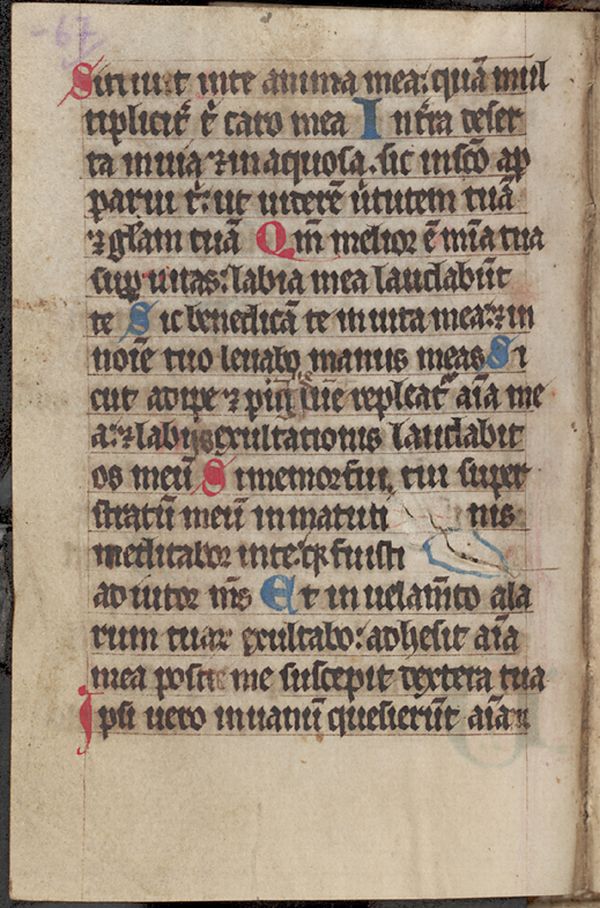 Sitiuit in te anima mea: quā mul
tiplicit̄ t̄ caro mea In t̄ra deser
ta inuia ⁊ inaquosa. sic in sc̄o ap
parui t̄: ut uiterē ūtutem tuā
⁊ gl̄am tuā Qm̄ melior ē mīa tua
sup̱ uitas: labia mea laudabūt
te Sic benedicā te in uita mea: ⁊ in
noīe tuo leuabo manus meas Si
cut adipe ⁊ pīgue repleat̄ aīa me
a: ⁊ labijs exultationis laudabit
os meū Si memor fui tui super
stratū meū in matuti nis
meditabor in te: qꝛ fuisti
adiutor m̄s Et in uelam̄to ala
rum tuaꝝ exultabo: adhesit aīa
mea post me suscepit dextera tua
Ipsi uero in uanū quesierūt aīam